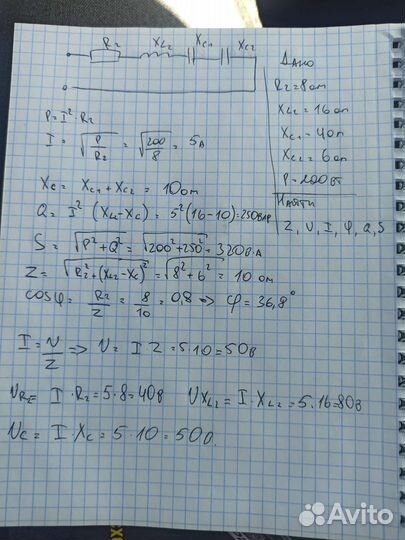 R2 XL2 XC1 XC2
Дано
R2=8ом
XL2=16ом
XC1=4ом
XC2=6ом
P=200вт
Найти
Z, U, I, φ, Q, S
P=I²·R2
I = √(P/R2) = √(200/8) = 5А
Xc = XC1 + XC2 = 10ом
Q = I² (XL-XC) = 5²(16-10)=250ВАР
S = √(P²+Q²) = √(200²+250²) = 320В·А
Z = √(R2²+(XL2-XC)²) = √(8²+6²) = 10 ом
cosφ = R2/Z = 8/10 = 0,8 => φ = 36,8°
I = U/Z => U = I·Z = 5·10 = 50в
UR2 = I·R2 = 5·8 = 40в UXL2 = I·XL2 = 5·16=80в
UC = I·XC = 5·10 = 50в.
Avito